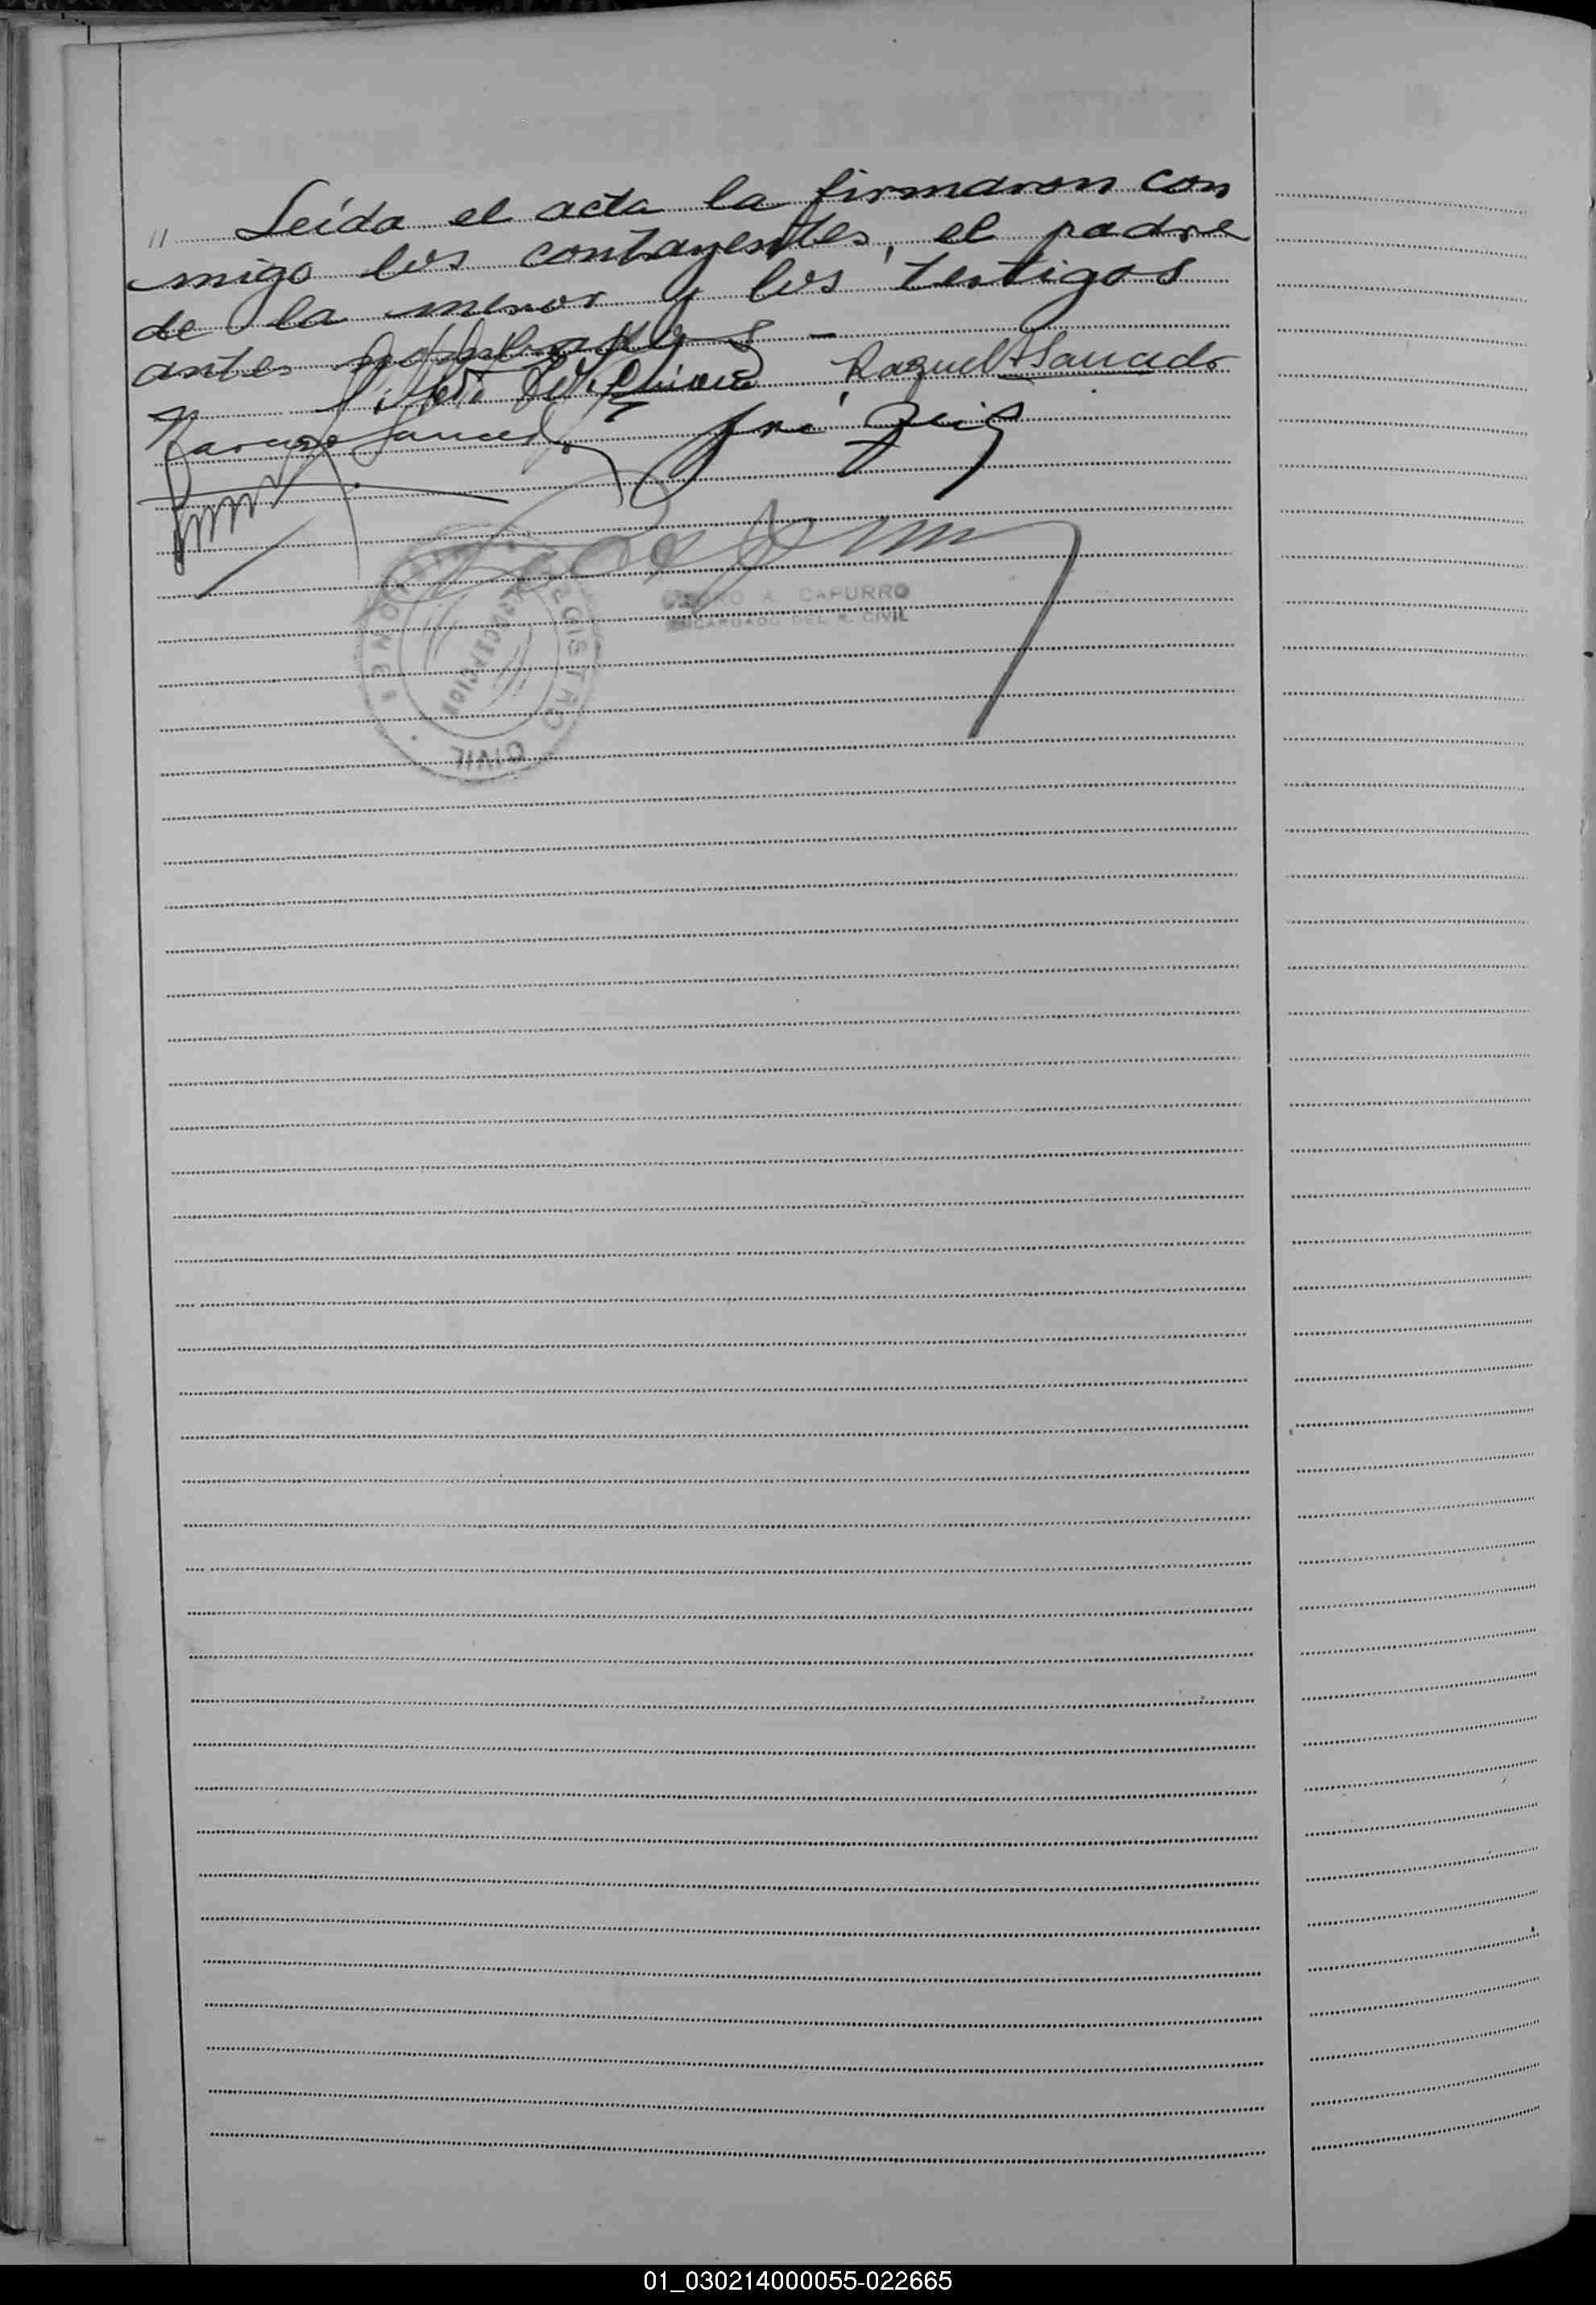 " Leída el acta la firmaron con
migo los contrayentes, el padre
de la menor y los testigos
antes nombrados -
Raquel A Saucedo
Saucedo José Puig
REGISTRO CIVIL
CONCEPCION
PEDRO A. CAPURRO
ENCARGADO DEL R. CIVIL
01_030214000055-022665